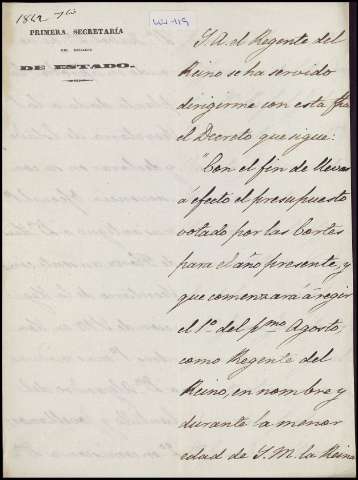 1842
LW-119
PRIMERA SECRETARÍA
DEL DESPACHO
DE ESTADO.
S. A. el Regente del
Reino se ha servido
dirigirme con esta fha
el Decreto que sigue:
"Con el fin de llevar
á efecto el presupuesto
votado por las Cortes
para el año presente, y
que comenzará á regir
el 1º del pmo Agosto,
como Regente del
Reino, en nombre y
durante la menor
edad de S. M. la Reina